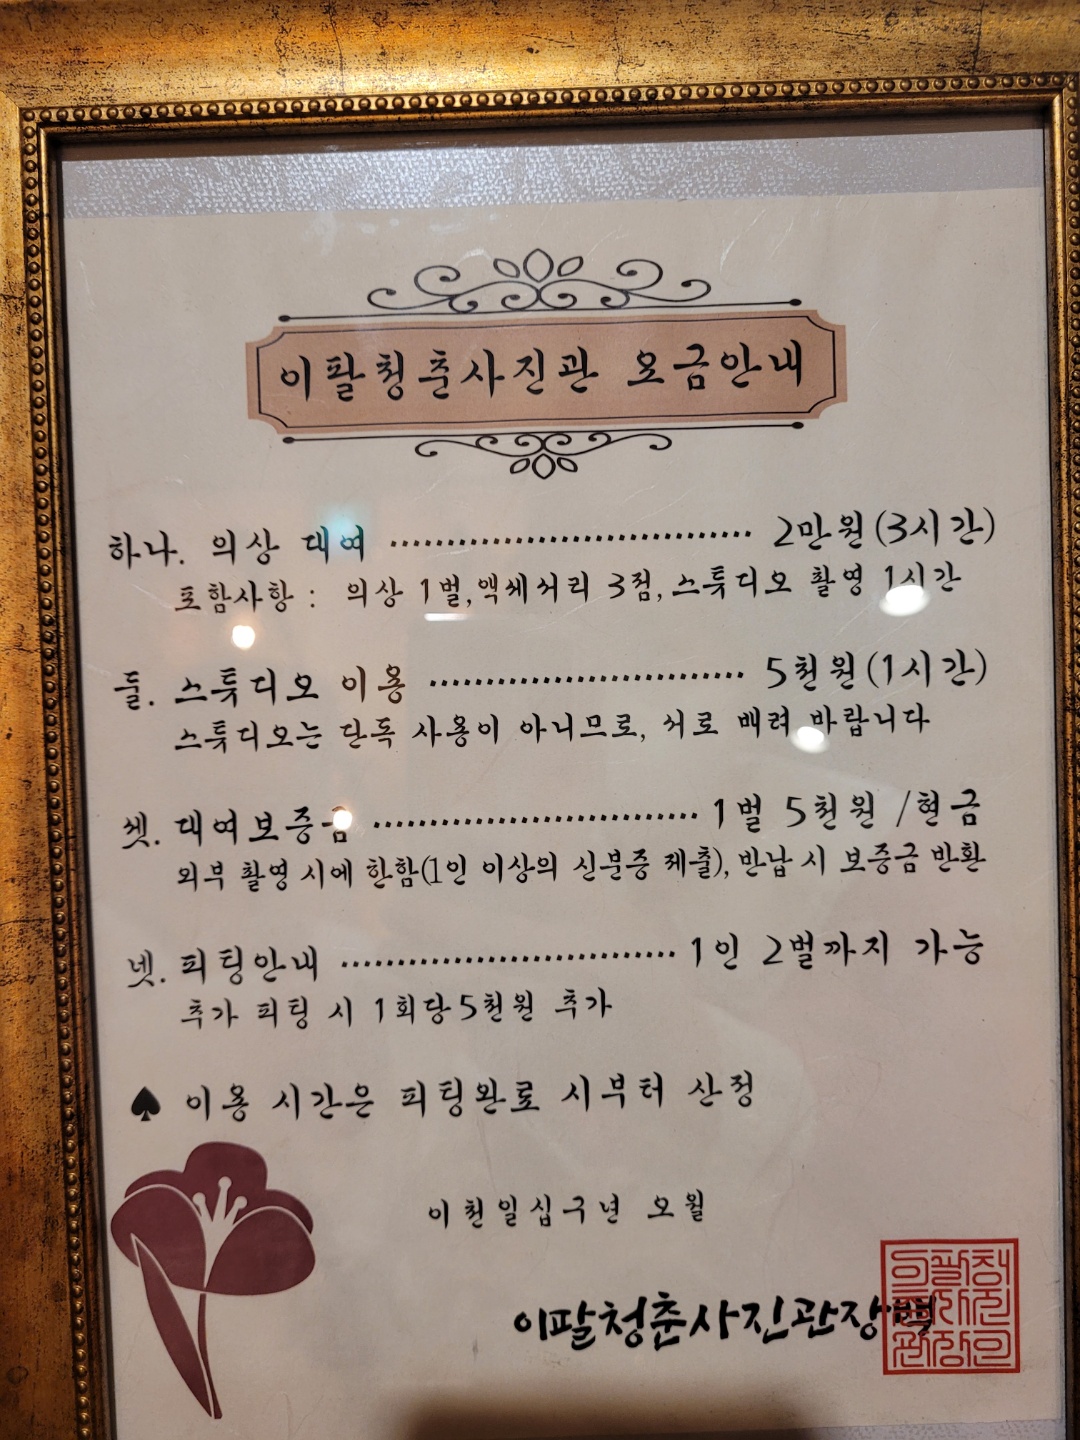 이팔청춘사진관 요금안내
하나. 의상 대여 ................................ 2만원(3시간)
포함사항 : 의상 1벌,액세서리 3점,스튜디오 촬영 1시간
둘. 스튜디오 이용 ............................ 5천원(1시간)
스튜디오는 단독 사용이 아니므로, 서로 배려 바랍니다
셋. 대여보증금 ............................. 1벌 5천원 /현금
외부 촬영 시에 한함(1인 이상의 신분증 제출), 반납 시 보증금 반환
넷. 피팅안내 .............................. 1인 2벌까지 가능
추가 피팅 시 1회당5천원 추가
♠ 이용 시간은 피팅완료 시부터 산정
이천일십구년 오월
이팔청춘사진관장백